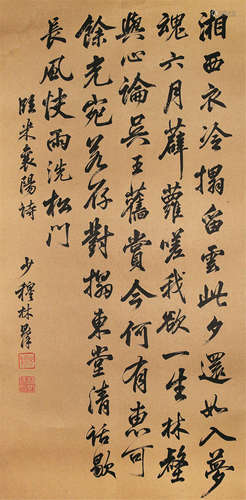 湘西衣冷搨留雲此夕還如入夢
魂六月薜蘿嗟我欲一生林壑
與心論吳王舊賞今何有惠可
餘光宛若存對搨東堂清話歇
長風快雨洗松門
臨米襄陽詩
少穆林則徐